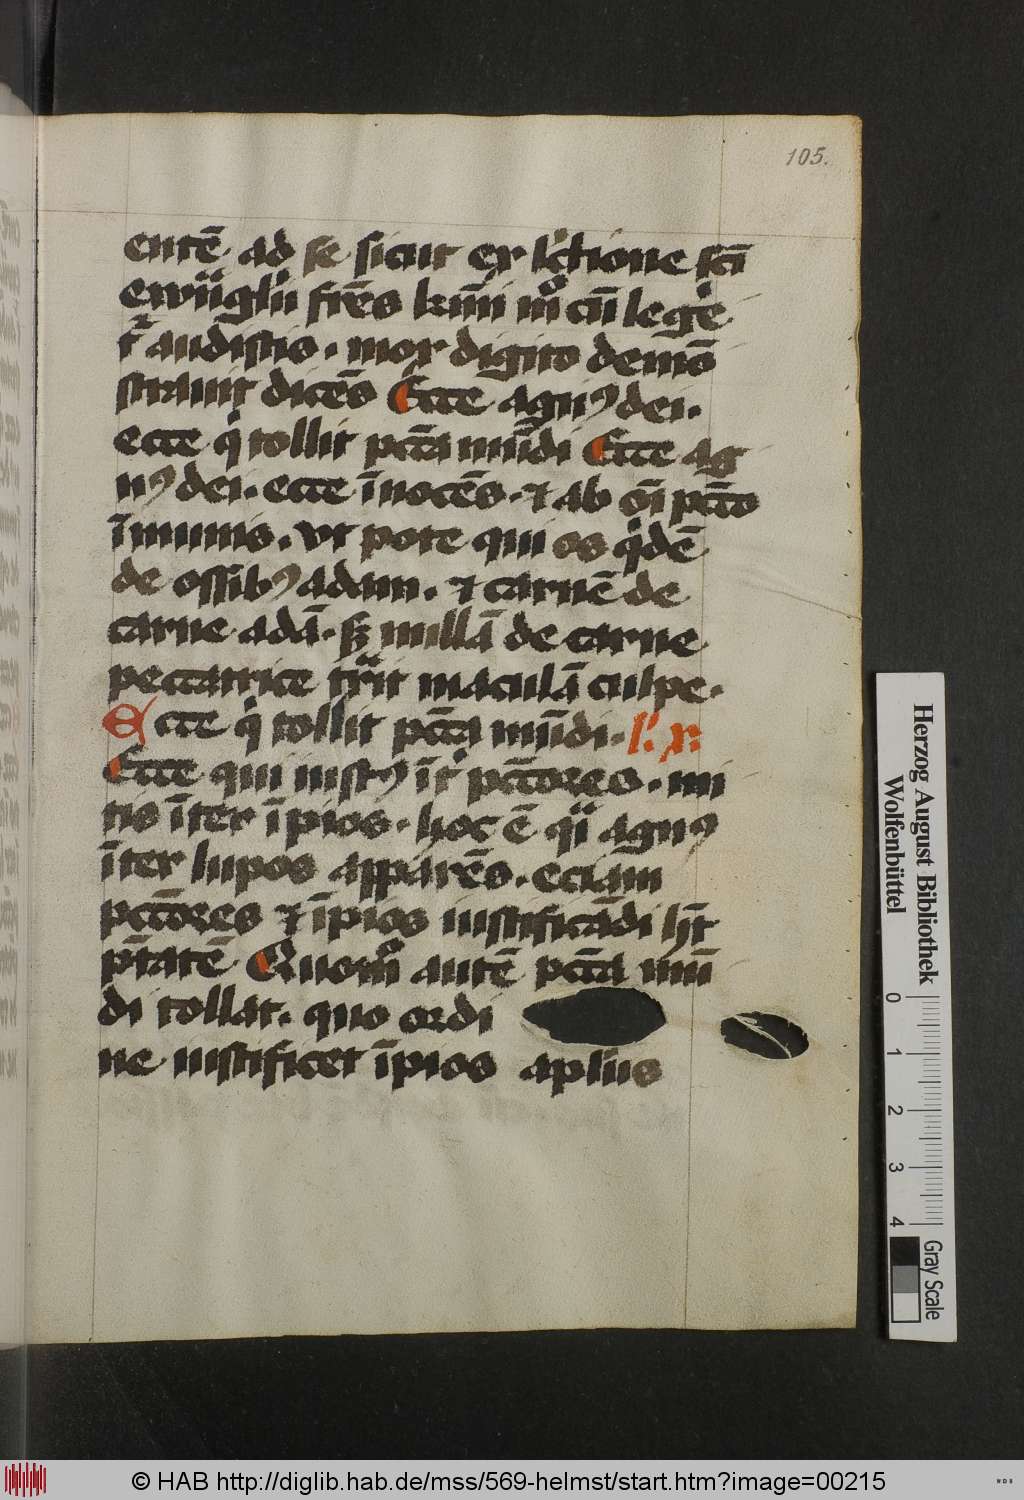 105.
entē ad se sicut ex lc̄tione sc̄i
ewāgłii fr̄es kmī mo cū lege
r̄ audistis . mox digito demō
strauit dicēs Ecce agnꝰ dei .
ecce qi tollit pc̄ta mūdi Ecce ag
nꝰ dei . ecce īnocēs . ⁊ ab oī pc̄to
īmunis . vt pote qui os qͥdē
de ossibꝰ adam . ⁊ carnē de
carne adā . sꝫ nullā de carne
peccatrice trͣit maculā culpe .
Ecce qͥ tollit pc̄ta mūdi . l'. x.
Ecce qui iustꝰ īt' pc̄cores . mi
tis īter īpios . hoc ē q̄i agnꝰ
īter lupos apparēs . eciam
pc̄cores ⁊ īpios iustificādi hꝫ
p̄tatē Quom̄o autē pc̄ta mū
di tollat . quo ordi
ne iustificet īpios apl'us
Herzog August Bibliothek
Wolfenbüttel
0 1 2 3 4
Gray Scale
© HAB http://diglib.hab.de/mss/569-helmst/start.htm?image=00215